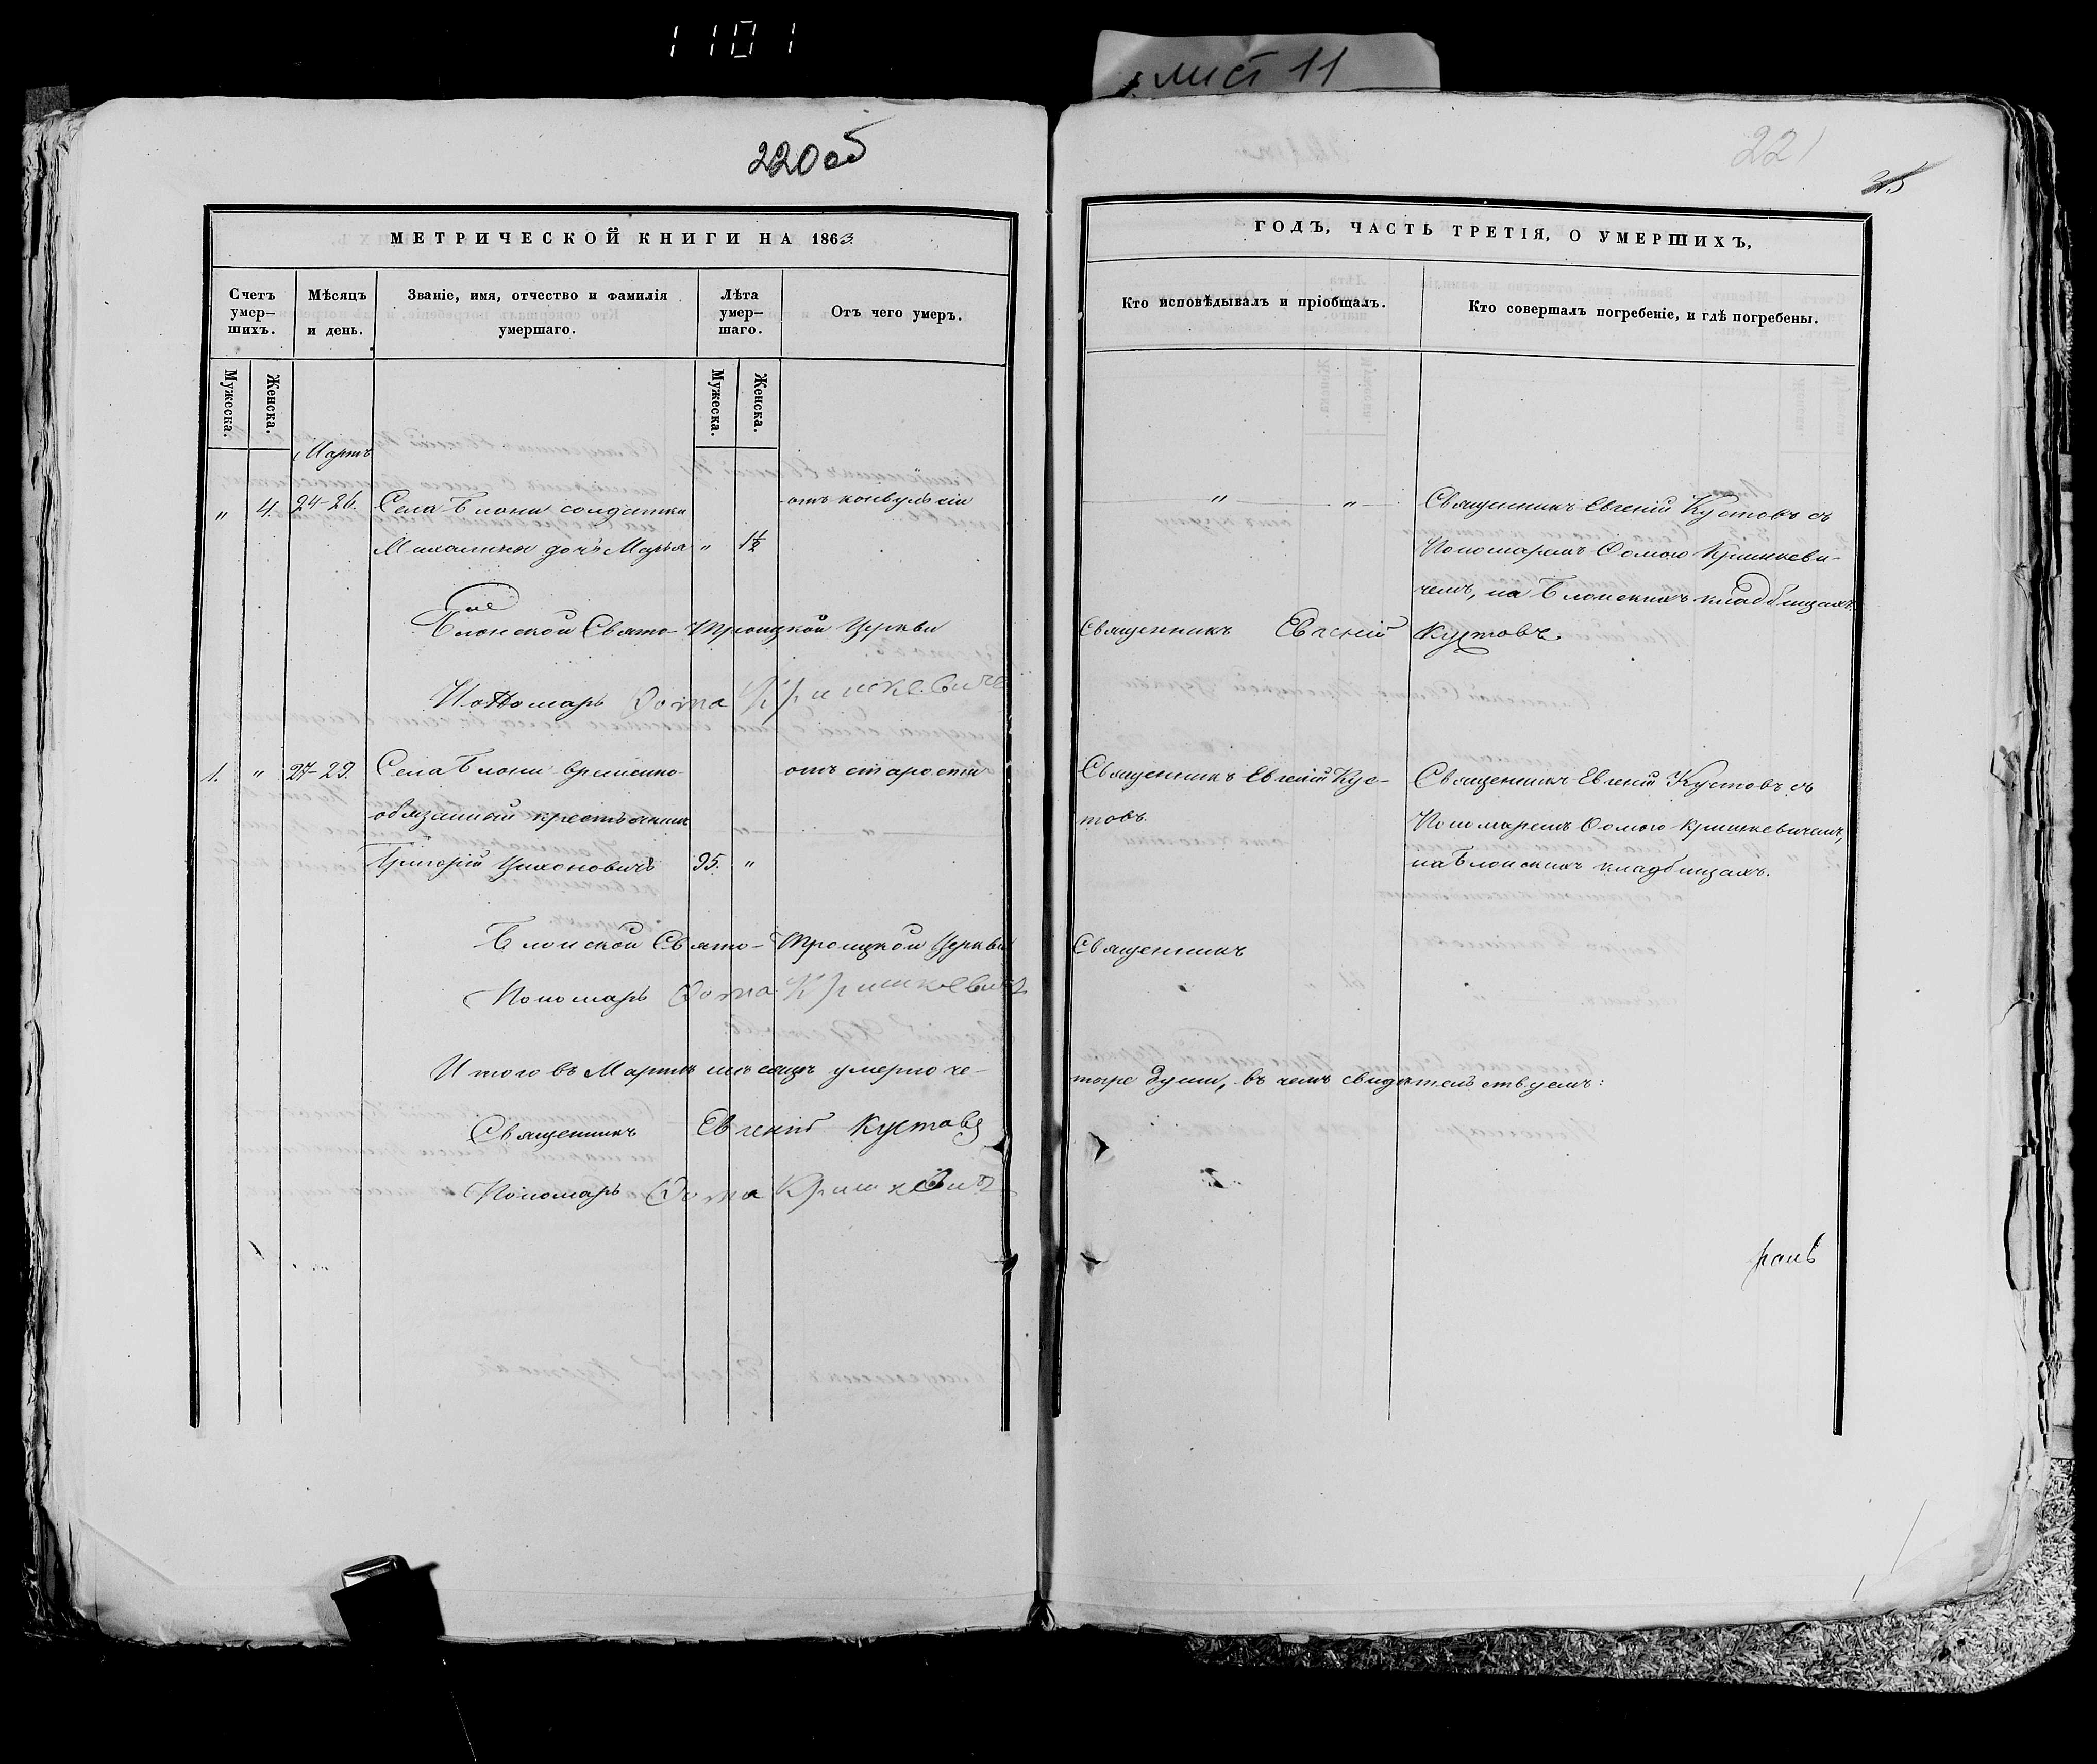 1101
лист 11
220об
221
35
МЕТРИЧЕСКОЙ КНИГИ НА 1863
Счетъ умер-шихъ.
Мѣсяцъ и день.
Званіе, имя, отчество и фамилія умершаго.
Лѣта умер-шаго.
Отъ чего умеръ.
Мужеска.
Женска.
Мужеска.
Женска.
Мартъ
" 4. 24-26. Села Блони солдатки отъ конвульсіи
дочь Марья " 1½
Блонской Свято-Троицкой Церкви
Пономарь Ѳома Кришкевичъ
1. " 27-29. Села Блони временно- отъ старости
обязанный крестьянинъ
Григорій Цихоновичъ 95. "
Блонской Свято-Троицкой Церкви
Пономарь Ѳома Кришкевичъ
Итого въ Мартѣ мѣсяцѣ умерло че-
Священникъ Евгеній Кустовъ
Пономарь Ѳома Кришкевичъ
ГОДЪ, ЧАСТЬ ТРЕТІЯ, О УМЕРШИХЪ,
Кто исповѣдывалъ и пріобщалъ.
Кто совершалъ погребеніе, и гдѣ погребены.
" " Священникъ Евгеній Кустовъ съ
Пономаремъ Ѳомою Кришкеви-
чемъ, на Блонскихъ кладбищахъ.
Священникъ Евгеній Кустовъ.
Священникъ Евгеній Кус- Священникъ Евгеній Кустовъ съ
товъ. Пономаремъ Ѳомою Кришкевичемъ,
на Блонскихъ кладбищахъ.
Священникъ
тыре души, въ чемъ свидѣтельствуемъ: